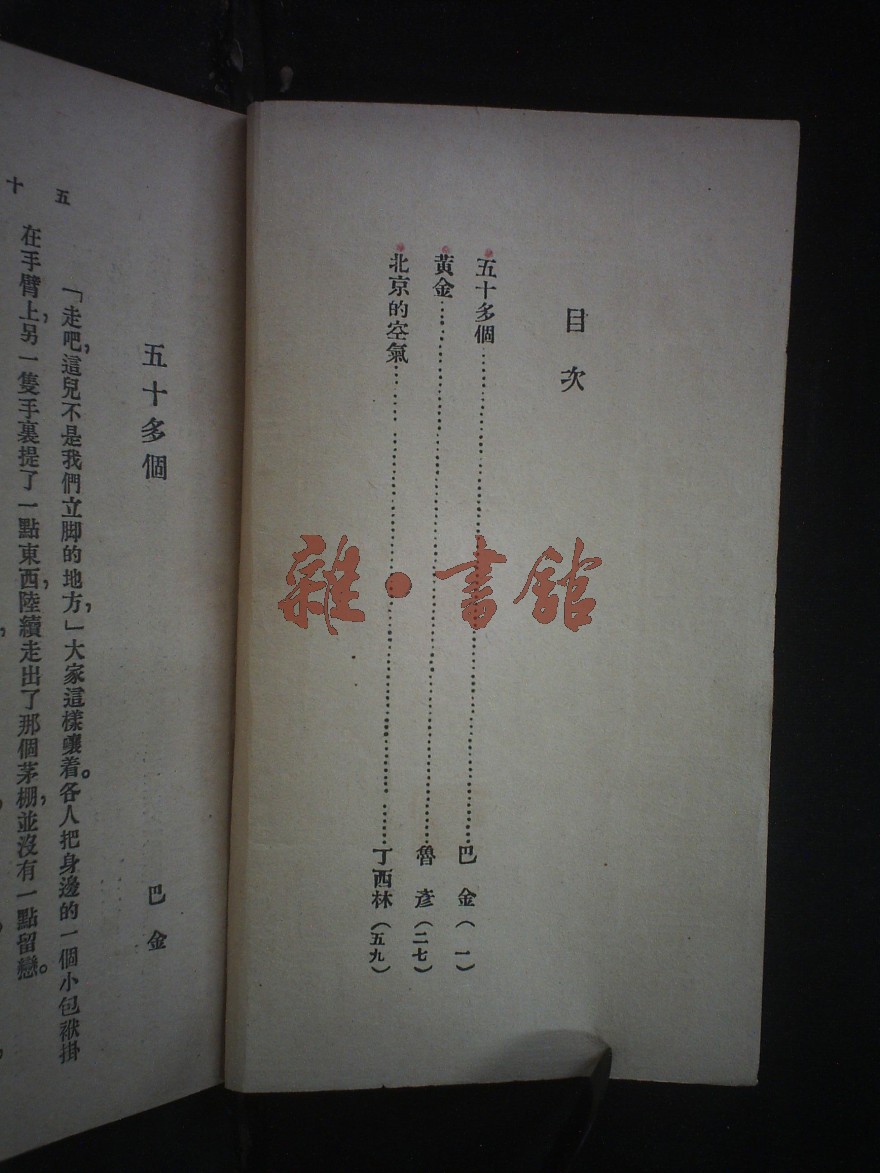 目次
五十多個……巴金（一）
黃金……魯彥（二七）
北京的空氣……丁西林（五九）
雜·書館
五十
五十多個
巴金
「走吧，這兒不是我們立脚的地方，」大家這樣嚷着。各人把身邊的一個小包袱掛
在手臂上，另一隻手裏提了一點東西，陸續走出了那個茅棚，並沒有一點留戀。